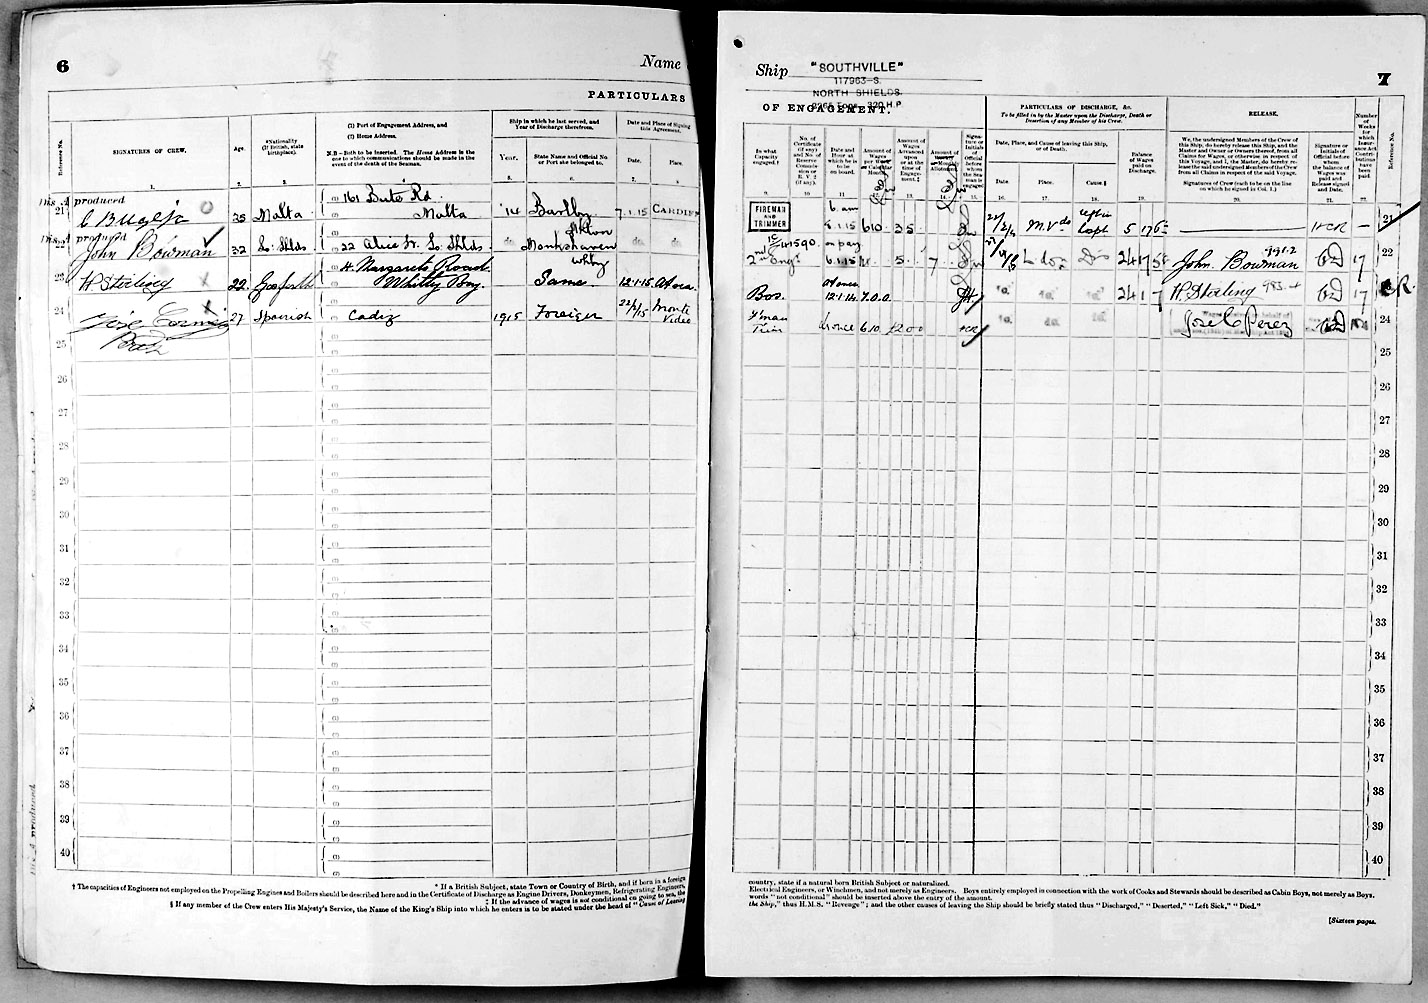 6
Name
PARTICULARS
Reference No.
SIGNATURES OF CREW.
Age.
*Nationality
(If British, state
birthplace).
(1) Port of Engagement Address, and
(2) Home Address.
N.B.—Both to be inserted. The Home Address is the
one to which communications should be made in the
event of the death of the Seaman.
Ship in which he last served, and
Year of Discharge therefrom.
Year.
State Name and Official No.
or Port she belonged to.
Date and Place of Signing
this Agreement.
Date.
Place.
1. 2. 3. 4 5. 6. 7. 8
Dis. A produced
21 35 Malta 161 Bute Rd Malta '14 7.1.15 CARDIFF
Dis. A produced
John Bowman 32 So: Shlds 22 Alice St. So: Shlds. do. Monkshaven do do
Whitby
23 H Sterling 22 Gosforth 4. Margarets Road. Whitley Bay. Same. 12.1.15 At sea.
24 Jose 27 Spanish Cadiz 1915 Foreign Monte Video
25
26
27
28
29
30
31
32
33
34
35
36
37
38
39
40
* If a British Subject, state Town or Country of Birth, and if born in a foreign
† The capacities of Engineers not employed on the Propelling Engines and Boilers should be described here and in the Certificate of Discharge as Engine Drivers, Donkeymen, Refrigerating Engineers,
‡ If the advance of wages is not conditional on going to sea, the
§ If any member of the Crew enters His Majesty's Service, the Name of the King's Ship into which he enters is to be stated under the head of "Cause of Leaving
Ship "SOUTHVILLE"
117963-S.
NORTH SHIELDS.
320 H.P.
7
OF ENGAGEMENT.
PARTICULARS OF DISCHARGE, &c.
To be filled in by the Master upon the Discharge, Death or
Desertion of any Member of his Crew.
RELEASE.
In what
Capacity
engaged.†
No. of
Certificate
(if any)
and No. of
Reserve
Commis-
sion or
R. V. 2
(if any).
Date and
Hour at
which he
is to be
on board.
Amount of
Wages
per
Calendar
Month.
Amount of
Wages
Advanced
upon
or at the
time of
Engage-
ment.‡
Amount of
Monthly
Allotment.
Signa-
ture or
Initials of
Official
before
whom the
Seaman is
engaged
Date, Place, and Cause of leaving this Ship,
or of Death.
Date.
Place.
Cause.§
Balance
of Wages
paid on
Discharge.
We, the undersigned Members of the Crew of
this Ship, do hereby release this Ship, and the
Master and Owner or Owners thereof, from all
Claims for Wages, or otherwise in respect of
this Voyage, and I, the Master, do hereby re-
lease the said undersigned Members of the Crew
from all Claims in respect of the said Voyage.
Signatures of Crew (each to be on the line
on which he signed in Col. 1.)
Signature or
Initials of
Official before
whom the
balance of
Wages was
paid and
Release signed
and Date.
Number
of
Weeks
for
which
Insur-
ance Act
Contri-
butions
have
been
paid.
Reference No.
9. 10. 11. 12. 13. 14. 15. 16. 17. 18. 19. 20. 21. 22.
FIREMAN
AND
TRIMMER
6 am
8.1.15 610 35 M.Vdo 5 17 6 21
2nd Engr 41590 5 7 Ldon 24 17 5 John Bowman 17 22
Bos. At once 12.1.15 7.0.0 do do do 24 1 7 H. Sterling 17 R.
F'man
Trim at once 6.10 £200 do do do Jose C Perez 24
25
26
27
28
29
30
31
32
33
34
35
36
37
38
39
40
country, state if a natural born British Subject or naturalized.
Electrical Engineers, or Winchmen, and not merely as Engineers. Boys entirely employed in connection with the work of Cooks and Stewards should be described as Cabin Boys, not merely as Boys.
words "not conditional" should be inserted above the entry of the amount.
the Ship," thus H.M.S. "Revenge"; and the other causes of leaving the Ship should be briefly stated thus "Discharged," "Deserted," "Left Sick," "Died."
[Sixteen pages.